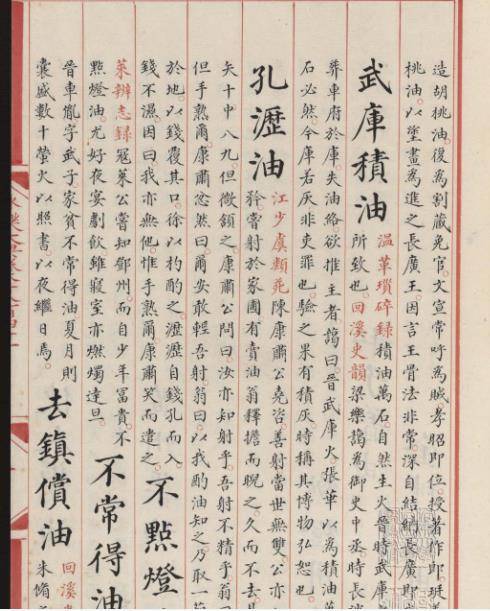 造胡桃油復為割藏免官文宣常呼為賊孝昭即位授著作郎珽
桃油以塗畫為進之長廣王因言王骨法非常深自結納長廣即
武庫積油
溫革瑣碎錄積油萬石自然生火晉時武庫
所致也回溪史韻梁樂藹為御史中丞時長
莽車府於庫失油絡欲推主者藹曰晉武庫火張華以為積油
石必然今庫若灰非吏罪也驗之果有積灰時稱其博物弘恕也
孔瀝油
江少虞類苑陳康肅公堯咨善射當世無雙公亦
矜嘗射於家圃有賣油翁釋擔而睨之久而不去
矢十中八九但微頷之康肅公問曰汝亦知射乎吾射不精乎翁
但手熟爾康肅忿然曰爾安敢輕吾射翁曰以我酌油知之乃取一
於地以錢覆其口徐以杓酌之瀝瀝自錢孔而入
錢不濕因曰我亦無他惟手熟爾康肅笑而遣之
不點燈
萊辨志錄冦萊公嘗知鄧州而自少年富貴不
點燈油尤好夜宴劇飲雖寢室亦燃燭達旦
不常得油
晉車胤字武子家貧不常得油夏月則
囊盛數十螢火以照書以夜繼日焉
去鎮償油
回溪
朱脩之